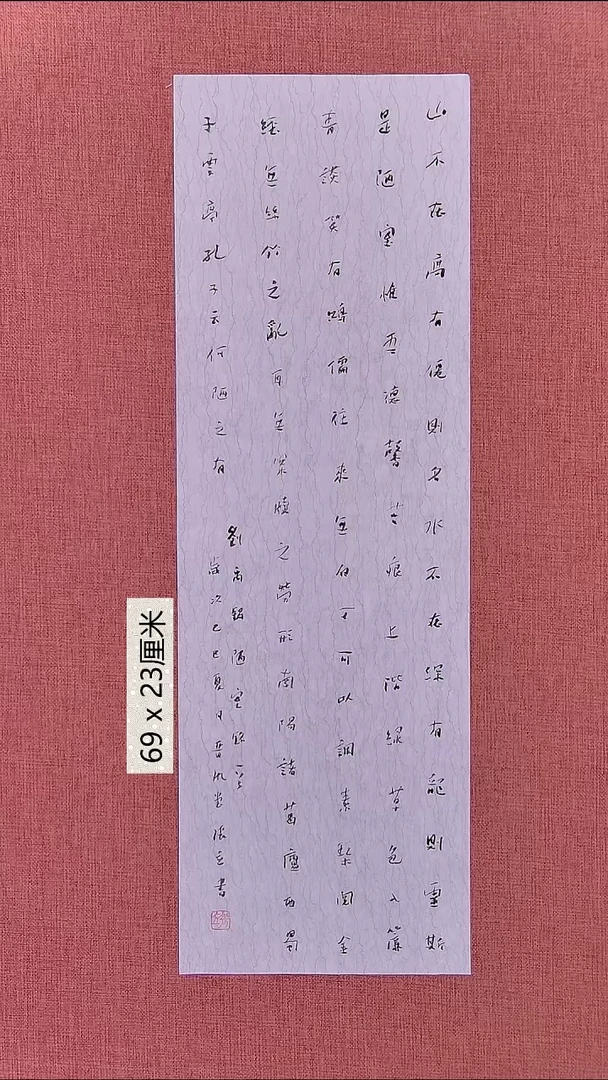 山不在高有僊則名水不在深有龍則靈斯
是陋室惟吾德馨苔痕上階綠草色入簾
青談笑有鴻儒往來無白丁可以調素琴閱金
經無絲竹之亂耳無案牘之勞形南陽諸葛廬西蜀
子雲亭孔子云何陋之有
劉禹錫陋室銘一首
歲次巳夏月晉風堂張立書
69 x 23厘米